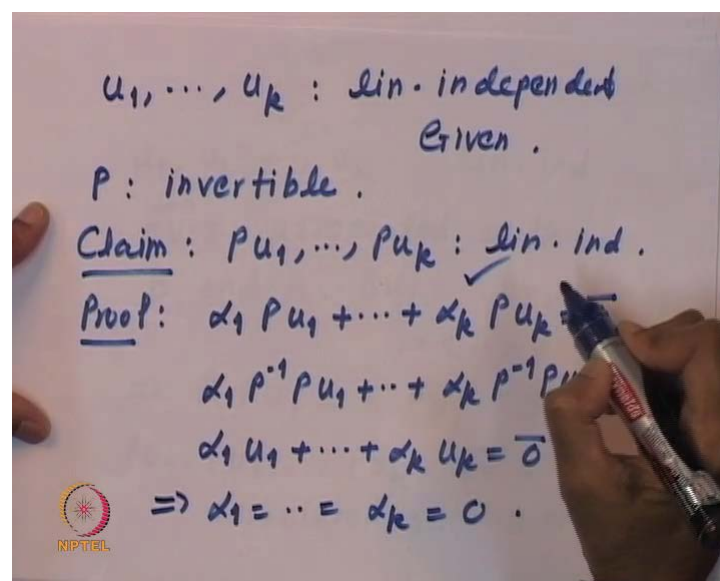 u₁, ⋯, uₖ : lin. independent
Given.
P : invertible.
Claim : Pu₁, ⋯, Puₖ : lin. ind.
Proof : α₁ P u₁ + ⋯ + αₖ P uₖ =
α₁ P⁻¹ P u₁ + ⋯ + αₖ P⁻¹ P u
α₁ u₁ + ⋯ + αₖ uₖ = 0̅
⇒ α₁ = ⋯ = αₖ = 0.
NPTEL